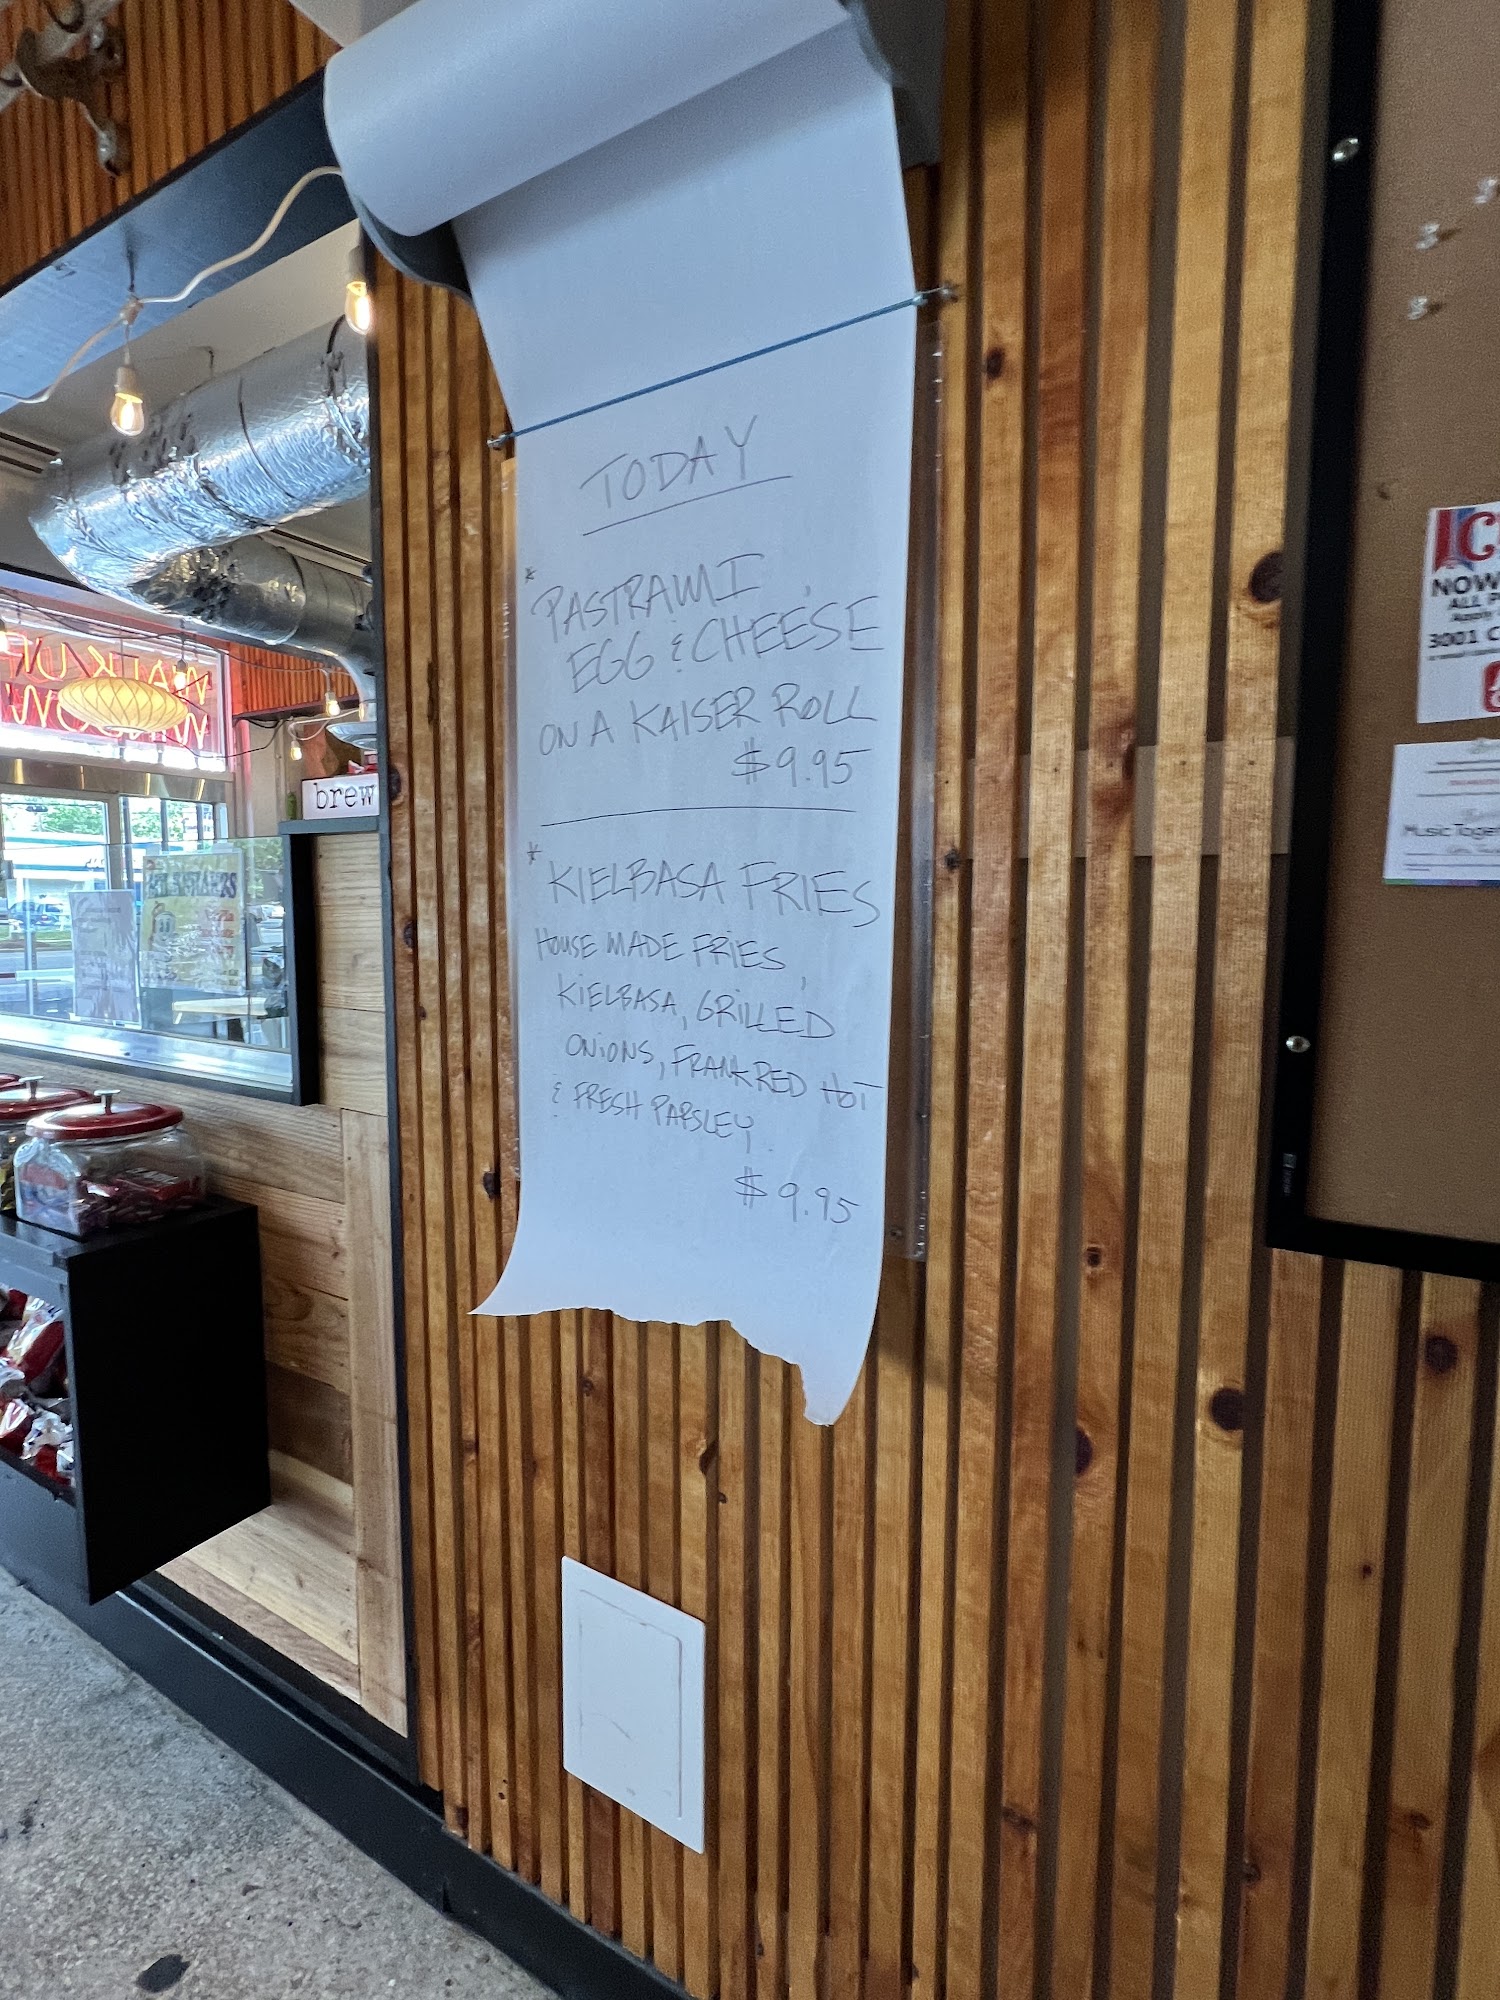 TODAY
* PASTRAMI,
EGG & CHEESE
ON A KAISER ROLL
$9.95
* KIELBASA FRIES
HOUSE MADE FRIES,
KIELBASA, GRILLED
ONIONS, FRANK RED HOT
& FRESH PARSLEY.
$9.95
brew
NOW
ALL P
Apply
3001 C
Music Toget
WALK UP
WINDOW